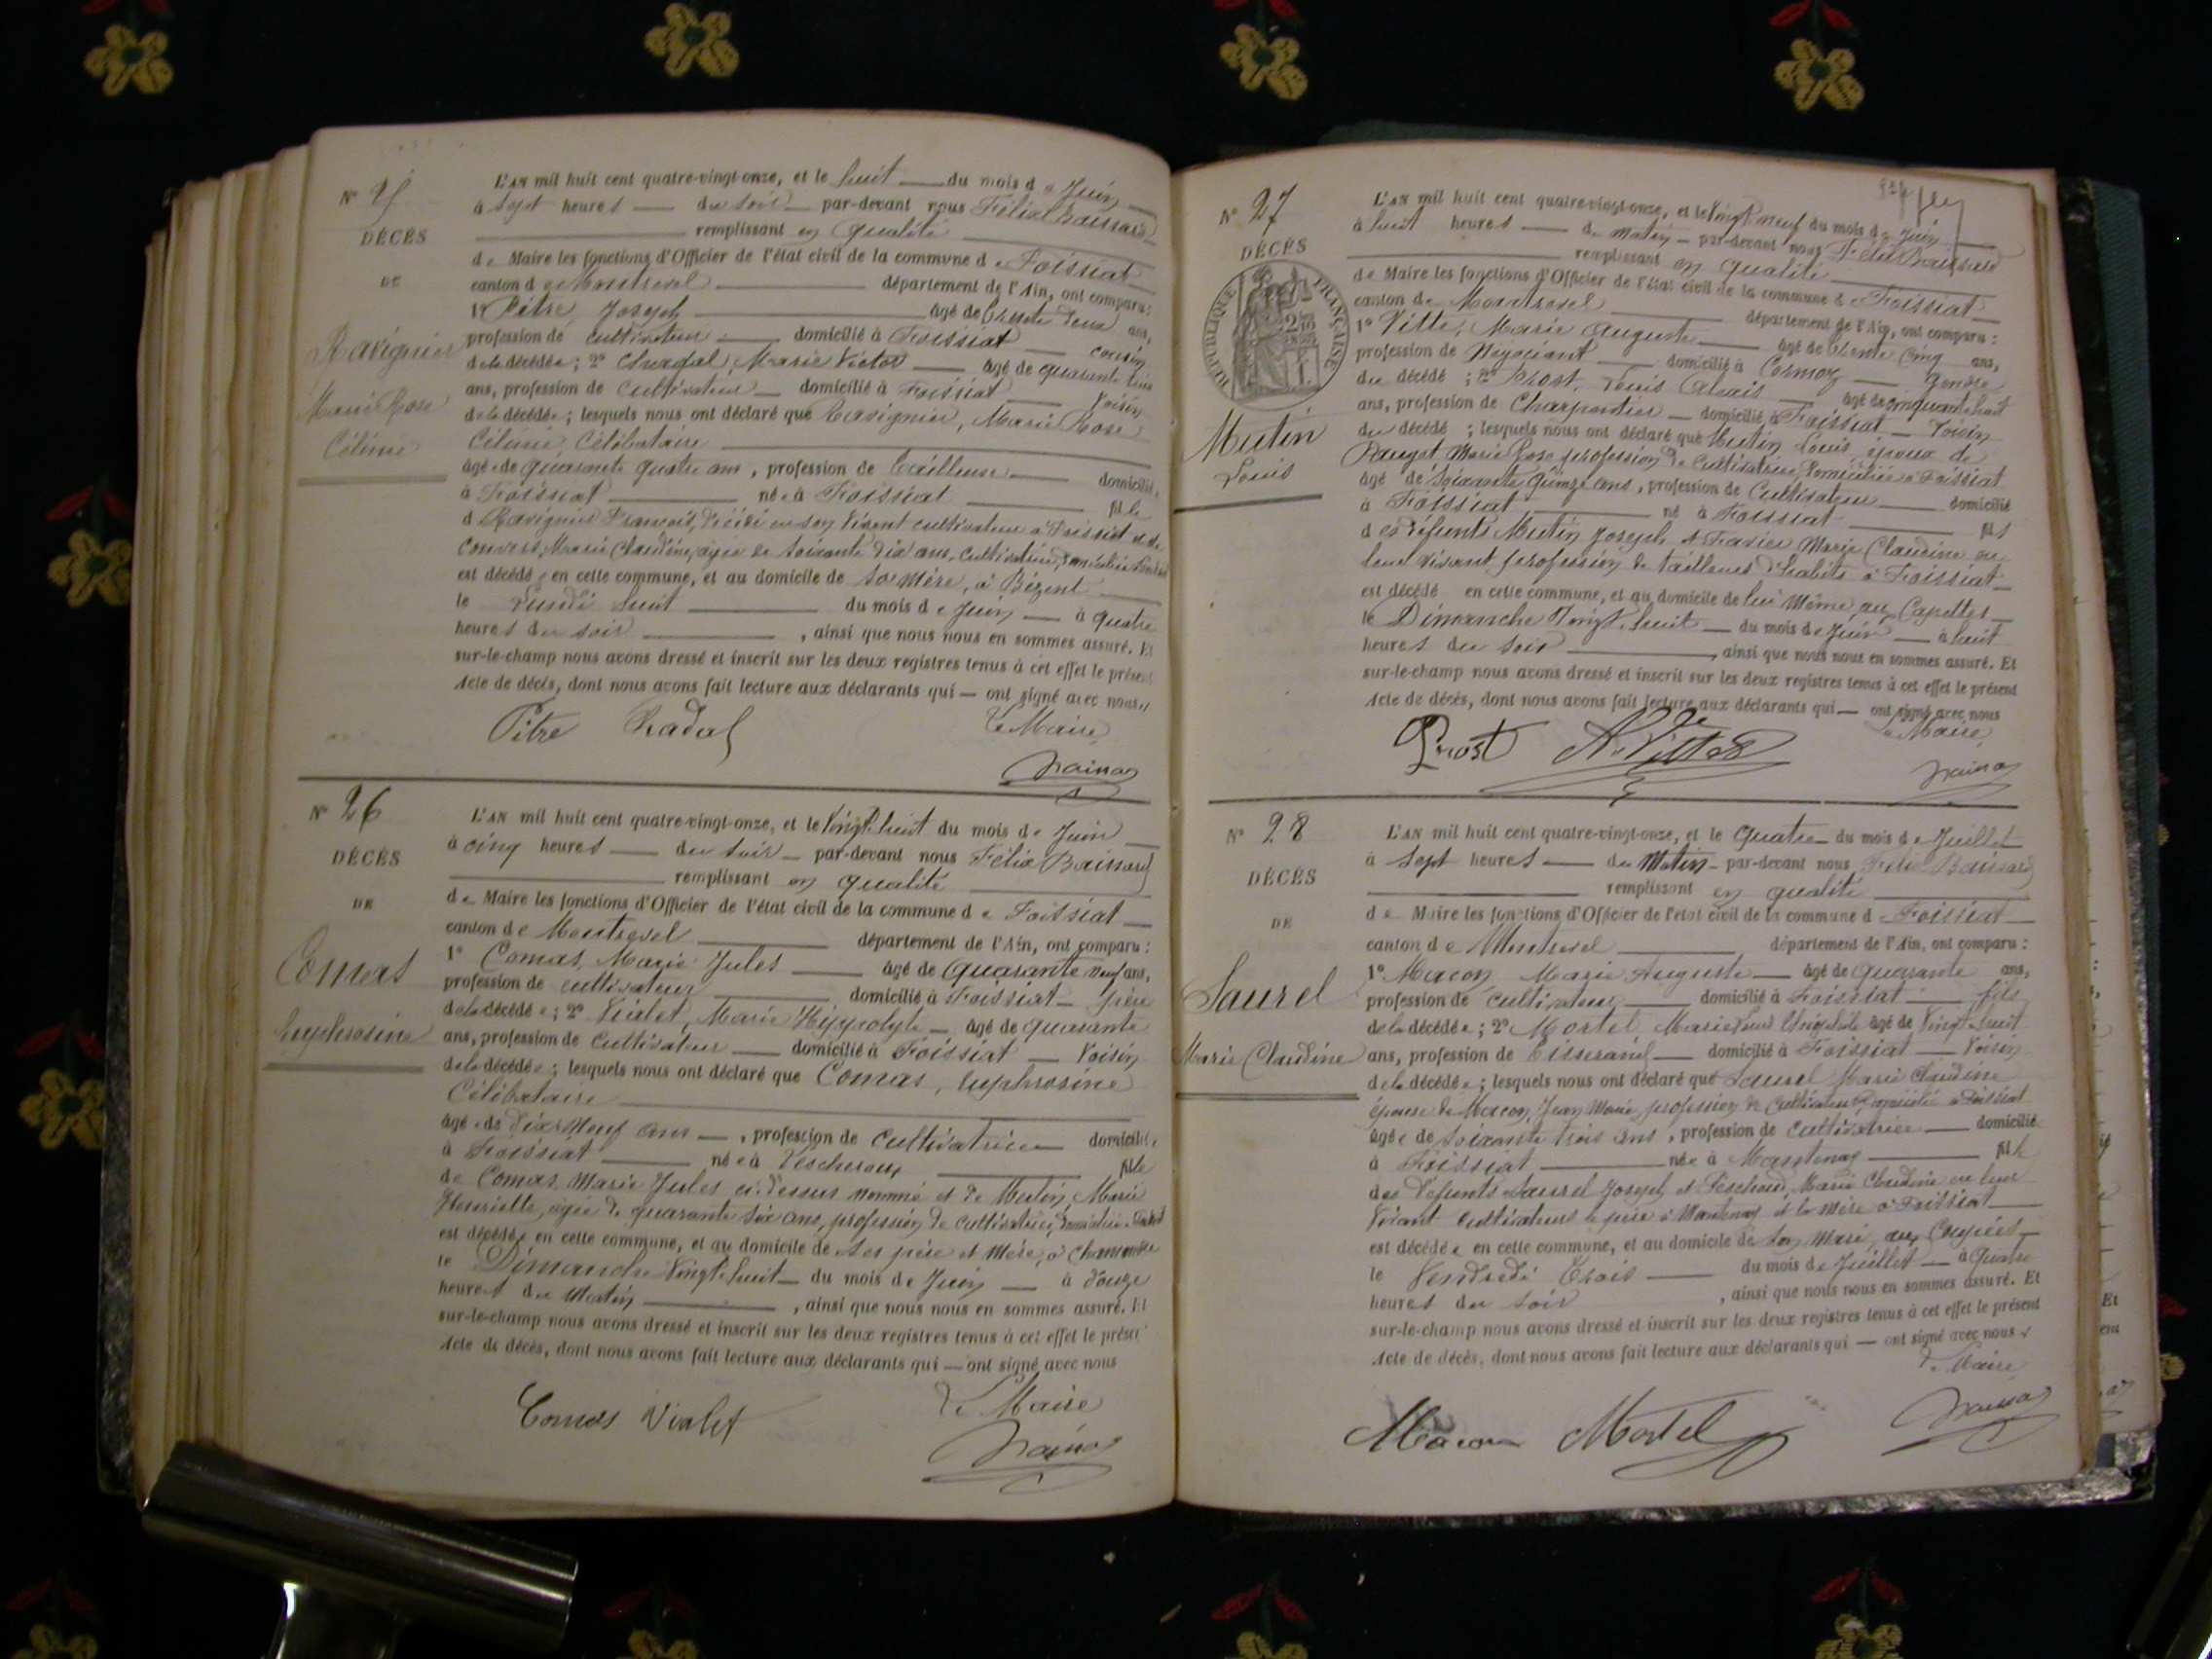 N° 25
DÉCÈS
DE
Ravignier
Marie Rose
Céline
L'AN mil huit cent quatre-vingt-onze, et le huit du mois de Juin
à Sept heures du soir par-devant nous Félix
remplissant en qualité
de Maire les fonctions d'Officier de l'état civil de la commune de Foissiat
canton de Montrevel département de l'Ain, ont comparu:
1° Pitre Joseph âgé de trente deux ans,
profession de cultivateur domicilié à Foissiat cousin
de la décédée; 2° Marie Victor âgé de quarante
ans, profession de Cultivateur domicilié à Foissiat Voisin
de la décédée; lesquels nous ont déclaré que Ravignier, Marie Rose
Céline, Célibataire
âgée de quarante quatre ans, profession de tailleuse domiciliée
à Foissiat née à Foissiat fille
d Ravignier François, décédé en son vivant cultivateur à Foissiat et de
Convert, Marie Claudine, âgée de soixante dix ans, cultivatrice, domiciliée
est décédée en cette commune, et au domicile de sa mère, à Bézent
le Lundi huit du mois de Juin à quatre
heures du soir, ainsi que nous nous en sommes assuré. Et
sur-le-champ nous avons dressé et inscrit sur les deux registres tenus à cet effet le présent
Acte de décès, dont nous avons fait lecture aux déclarants qui — ont signé avec nous
Pitre Chadal Le Maire
N° 26
DÉCÈS
DE
Comas
Euphrosine
L'AN mil huit cent quatre-vingt-onze, et le Vingt huit du mois de Juin
à cinq heures du soir par-devant nous Félix
remplissant en qualité
de Maire les fonctions d'Officier de l'état civil de la commune de Foissiat
canton de Montrevel département de l'Ain, ont comparu:
1° Comas, Marie Jules âgé de quarante neuf ans,
profession de cultivateur domicilié à Foissiat père
de la décédée; 2° Vialet, Marie Hippolyte âgé de quarante
ans, profession de Cultivateur domicilié à Foissiat Voisin
de la décédée; lesquels nous ont déclaré que Comas, Euphrosine
Célibataire
âgée de dix neuf ans, profession de Cultivatrice domiciliée
à Foissiat née à Lescheroux fille
de Comas Marie Jules ci-dessus nommé et de Mutin, Marie
Henriette, âgée de quarante six ans, profession de cultivatrice, domiciliée
est décédée en cette commune, et au domicile de ses père et mère, à
le Dimanche Vingt huit du mois de Juin à douze
heures du Matin, ainsi que nous nous en sommes assuré. Et
sur-le-champ nous avons dressé et inscrit sur les deux registres tenus à cet effet le présent
Acte de décès, dont nous avons fait lecture aux déclarants qui — ont signé avec nous
Comas Vialet Le Maire
N° 27
DÉCÈS
RÉPUBLIQUE FRANÇAISE
Mutin
Louis
L'AN mil huit cent quatre-vingt-onze, et le Vingt neuf du mois de Juin
à huit heures du matin par-devant nous Félix
remplissant en qualité
de Maire les fonctions d'Officier de l'état civil de la commune de Foissiat
canton de Montrevel département de l'Ain, ont comparu:
1° Vitte, Marie Auguste âgé de trente cinq ans,
profession de Négociant domicilié à Cormoz gendre
du décédé; 2° Prost, Louis Alexis âgé de cinquante huit
ans, profession de Charpentier domicilié à Foissiat Voisin
du décédé; lesquels nous ont déclaré que Mutin Louis, époux de
Marie Rose profession de Cultivatrice domiciliée à Foissiat
âgé de soixante quinze ans, profession de Cultivateur domicilié
à Foissiat né à Foissiat fils
des défunts Mutin Joseph et Marie Claudine en
leur vivant profession de tailleurs d'habits à Foissiat
est décédé en cette commune, et au domicile de lui même aux Capettes
le Dimanche Vingt huit du mois de Juin à huit
heures du soir, ainsi que nous nous en sommes assuré. Et
sur-le-champ nous avons dressé et inscrit sur les deux registres tenus à cet effet le présent
Acte de décès, dont nous avons fait lecture aux déclarants qui — ont signé avec nous
Prost A. Vitte Le Maire
N° 28
DÉCÈS
DE
Saurel
Marie Claudine
L'AN mil huit cent quatre-vingt-onze, et le Quatre du mois de Juillet
à Sept heures du Matin par-devant nous Félix
remplissant en qualité
de Maire les fonctions d'Officier de l'état civil de la commune de Foissiat
canton de Montrevel département de l'Ain, ont comparu:
1° Macon Marie Auguste âgé de quarante ans,
profession de cultivateur domicilié à Foissiat fils
de la décédée; 2° Mortel Marie âgé de Vingt huit
ans, profession de Tisserand domicilié à Foissiat Voisin
de la décédée; lesquels nous ont déclaré que Saurel Marie Claudine
épouse de Macon, Jean Marie, profession de Cultivateur domicilié à Foissiat
âgée de soixante trois ans, profession de Cultivatrice domiciliée
à Foissiat née à Mantenay fille
des défunts Saurel Joseph et Marie Claudine en leur
vivant cultivateurs le père à Mantenay et la mère à Foissiat
est décédée en cette commune, et au domicile de son Mari, aux
le Vendredi trois du mois de Juillet à quatre
heures du soir, ainsi que nous nous en sommes assuré. Et
sur-le-champ nous avons dressé et inscrit sur les deux registres tenus à cet effet le présent
Acte de décès, dont nous avons fait lecture aux déclarants qui — ont signé avec nous
Le Maire
Macon Mortel